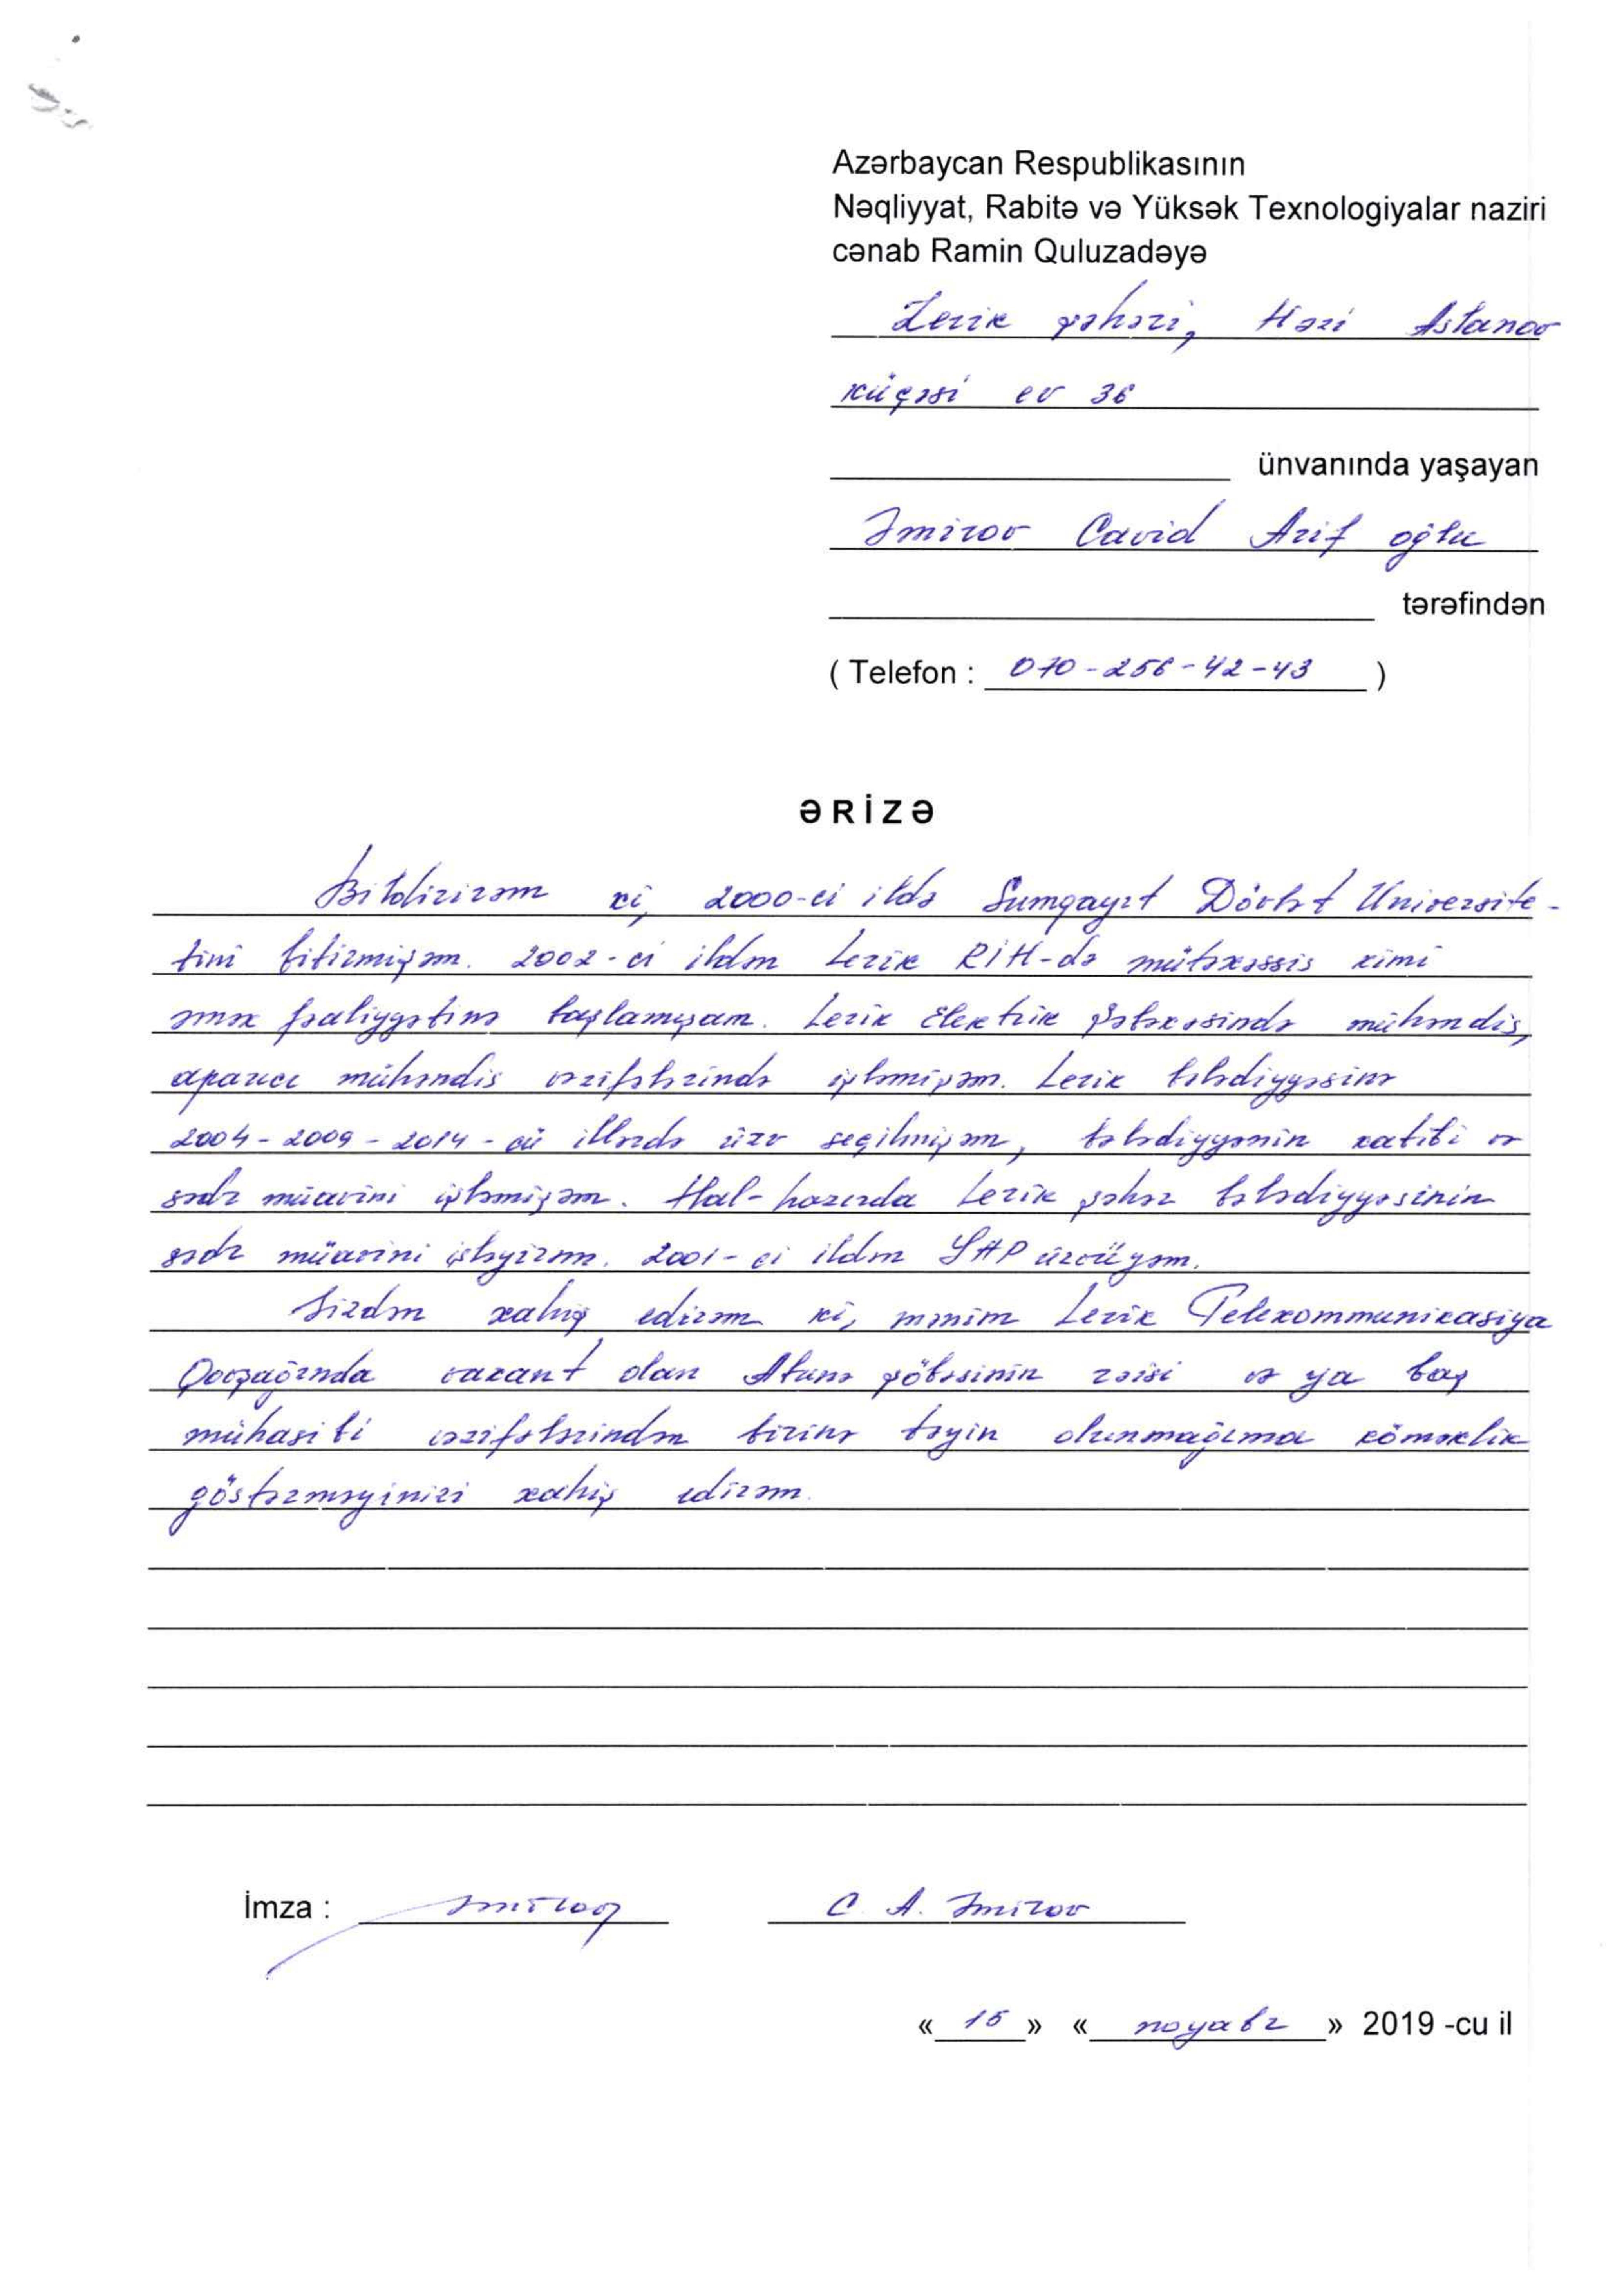 Azərbaycan Respublikasının
Nəqliyyat, Rabitə və Yüksək Texnologiyalar naziri
cənab Ramin Quluzadəyə
Lerik şəhəri, Həzi Aslanov
küçəsi ev 36
ünvanında yaşayan
Əmirov Cavid Arif oğlu
tərəfindən
( Telefon : 070-256-42-43 )
ƏRİZƏ
Bildirirəm ki, 2000-ci ildə Sumqayıt Dövlət Universite-
tini bitirmişəm. 2002-ci ildən Lerik RİH-də mütəxəssis kimi
əmək fəaliyyətinə başlamışam. Lerik Elektrik Şəbəkəsində mühəndis,
aparıcı mühəndis vəzifələrində işləmişəm. Lerik bələdiyyəsinə
2004-2009-2014-cü illərdə üzv seçilmişəm, bələdiyyənin katibi və
sədr müavini işləmişəm. Hal-hazırda Lerik şəhər bələdiyyəsinin
sədr müavini işləyirəm. 2001-ci ildən YAP üzvüyəm.
Sizdən xahiş edirəm ki, mənim Lerik Telekommunikasiya
Qovşağında vakant olan Abunə şöbəsinin rəisi və ya baş
mühasibi vəzifələrindən birinə təyin olunmağıma köməklik
göstərməyinizi xahiş edirəm.
İmza : Əmirov C. A. Əmirov
« 15 » « noyabr » 2019 -cu il